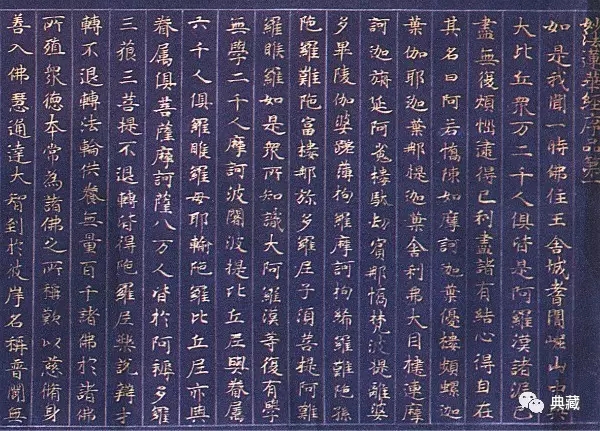 妙法蓮華經序品第一
如是我聞一時佛住王舍城耆闍崛山中與
大比丘眾万二千人俱皆是阿羅漢諸漏已
盡無復煩惱逮得己利盡諸有結心得自在
其名曰阿若憍陳如摩訶迦葉優樓頻螺迦
葉伽耶迦葉那提迦葉舍利弗大目揵連摩
訶迦旃延阿㝹樓馱劫賓那憍梵波提離婆
多畢陵伽婆蹉薄拘羅摩訶拘絺羅難陀孫
陀羅難陀富樓那弥多羅尼子須菩提阿難
羅睺羅如是眾所知識大阿羅漢等復有學
無學二千人摩訶波闍波提比丘尼與眷屬
六千人俱羅睺羅母耶輸陀羅比丘尼亦與
眷屬俱菩薩摩訶薩八万人皆於阿耨多羅
三藐三菩提不退轉皆得陀羅尼樂說辯才
轉不退轉法輪供養無量百千諸佛於諸佛
所殖眾德本常為諸佛之所稱歎以慈脩身
善入佛慧通達大智到於彼岸名稱普聞無
典藏